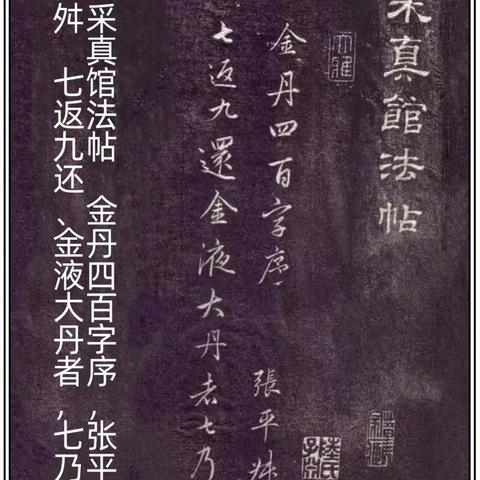 采真館法帖
金丹四百字序 張平
七返九還金液大丹者七乃
采真馆法帖 金丹四百字序,张平
舛 七返九还、金液大丹者,七乃